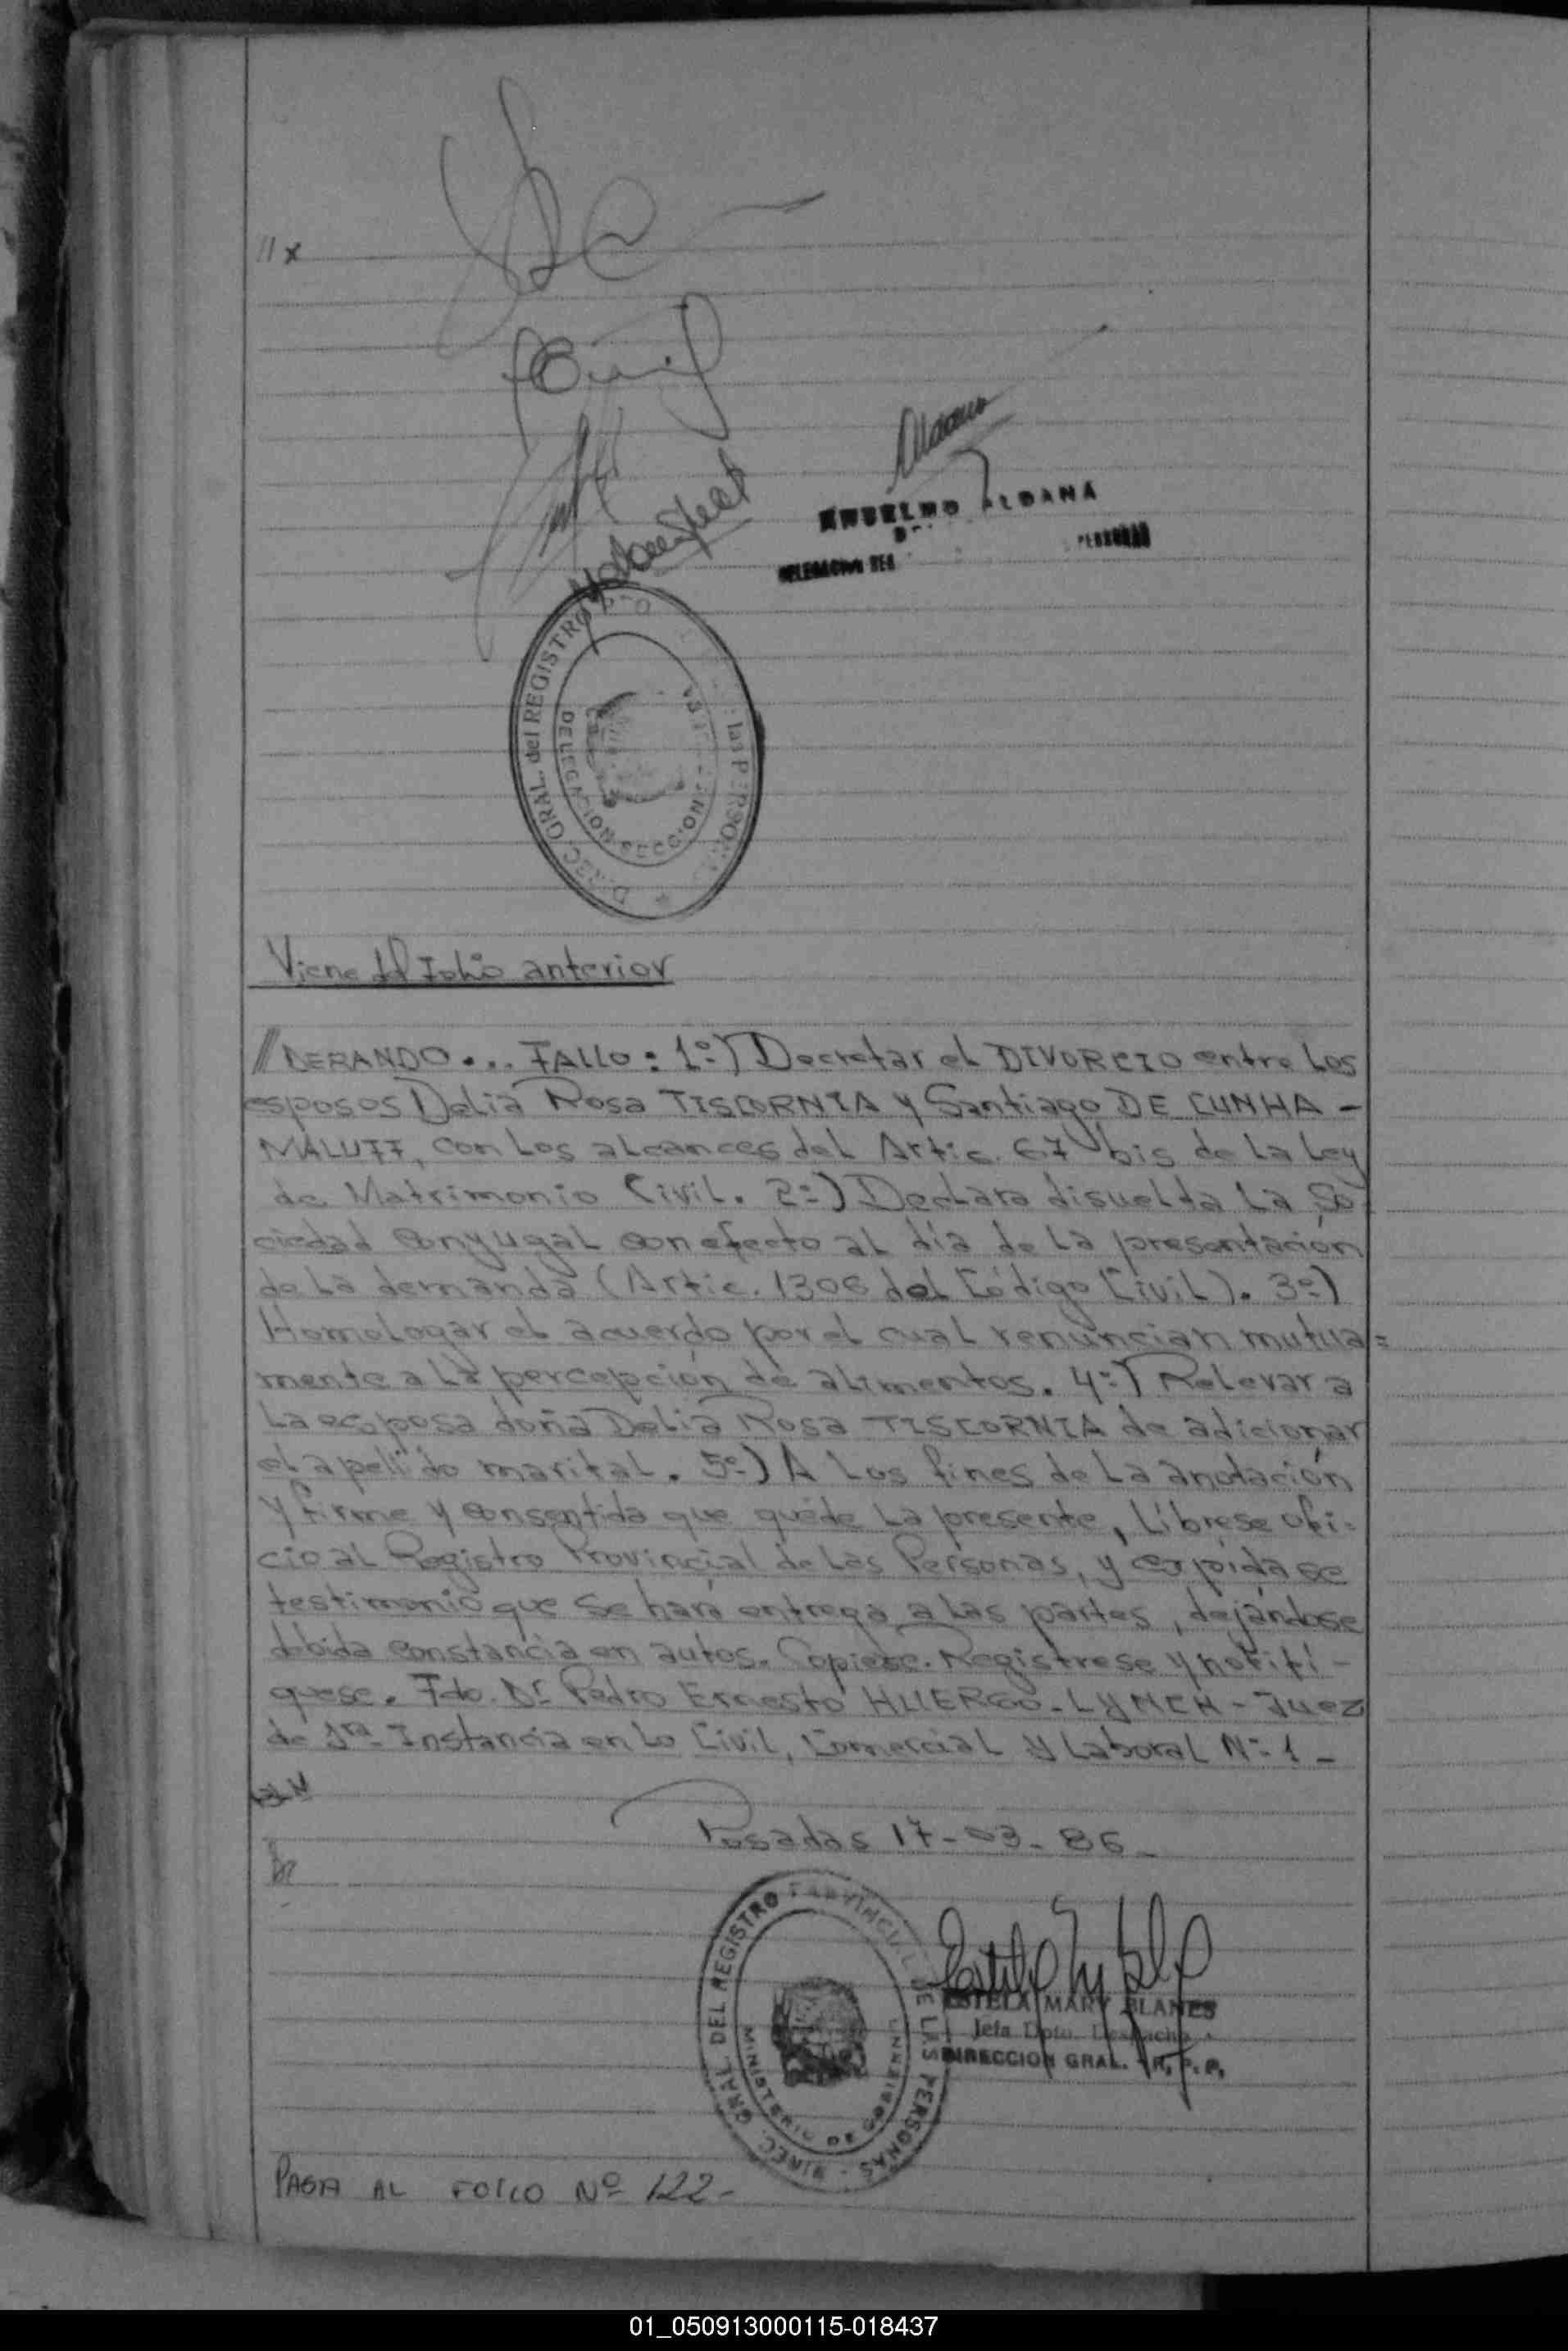 // x
ANSELMO ALDANA
DELEGACION
DIREC. GRAL. del REGISTRO las PERSONAS
DELEGACION SECCIONAL
Viene del Folio anterior
//DERANDO... FALLO: 1º) Decretar el DIVORCIO entre los
esposos Delia Rosa TISCORNIA y Santiago DE CUNHA -
MALUFF, con los alcances del Artic. 67 bis de la Ley
de Matrimonio Civil. 2º) Declara disuelta la So-
ciedad conyugal con efecto al día de la presentación
de la demanda (Artic. 1306 del Código Civil). 3º)
Homologar el acuerdo por el cual renuncian mutua=
mente a la percepción de alimentos. 4º) Relevar a
la esposa doña Delia Rosa TISCORNIA de adicionar
el apellido marital. 5º) A los fines de la anotación
y firme y consentida que quede la presente, líbrese ofi=
cio al Registro Provincial de las Personas, y expídase
testimonio que se hará entrega a las partes, dejándose
debida constancia en autos. Cópiese. Regístrese y notifí-
quese. Fdo. Dr Pedro Ernesto HUERGO-LYNCH - Juez
de 1ra Instancia en lo Civil, Comercial y Laboral Nº 1 -
Posadas 17-03-86-
DIREC. GRAL. DEL REGISTRO PROVINCIAL DE LAS PERSONAS -
MINISTERIO DE GOBIERNO
ESTELA MARY BLANES
Jefa Dpto. Despacho
DIRECCION GRAL. R. P. P.
PASA AL FOLIO Nº 122-
01_050913000115-018437